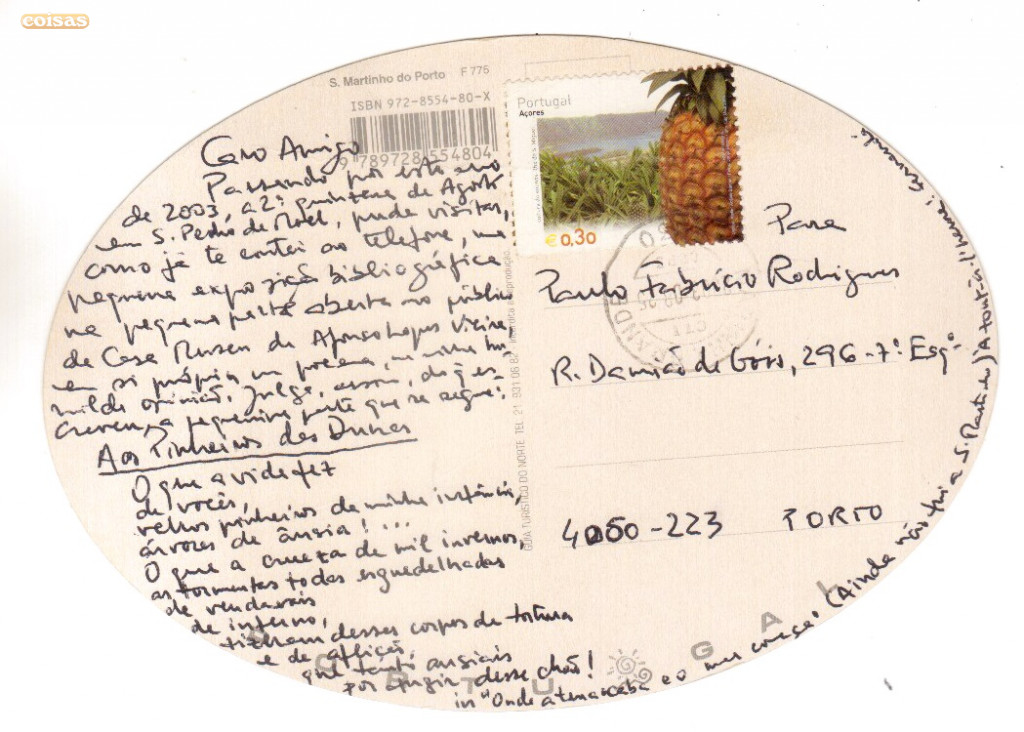 coisas
S. Martinho do Porto F 775
ISBN 972-8554-80-X
9 789728 554804
Portugal
Açores
€0,30
Caro Amigo
Passando por este ano
de 2003, a 2ª quinzena de Agosto
em S. Pedro de Moel, pude visitar,
como já te contei ao telefone, uma
pequena exposição bibliográfica
na pequena parte aberta ao público
da Casa Museu de Afonso Lopes Vieira
em si própria um poema, na minha hu-
milde opinião. Julga, assim, do q es-
creveu, a pequenina parte que se segue:
Aos Pinheiros das Dunas
O que a vida fez
de vocês,
velhos pinheiros da minha infância,
árvores de ânsia!...
O que a crueza de mil invernos,
as tormentas todas esguedelhadas
de vendavais
de inferno,
fizeram desses corpos de tortura
e de aflição,
que tanto ansiais
por fugir desse chão!
in "Onde a terra acaba e o mar começa" (Ainda não fui a S. Martinho) A tout-à-l'heure!
GUIA TURÍSTICO DO NORTE TEL. 21 931 06 82 Interdita a reprodução
Para
Paulo Fabrício Rodrigues
R. Damião de Góis, 296-7º Esqº
4050-223 PORTO
PORTUGAL